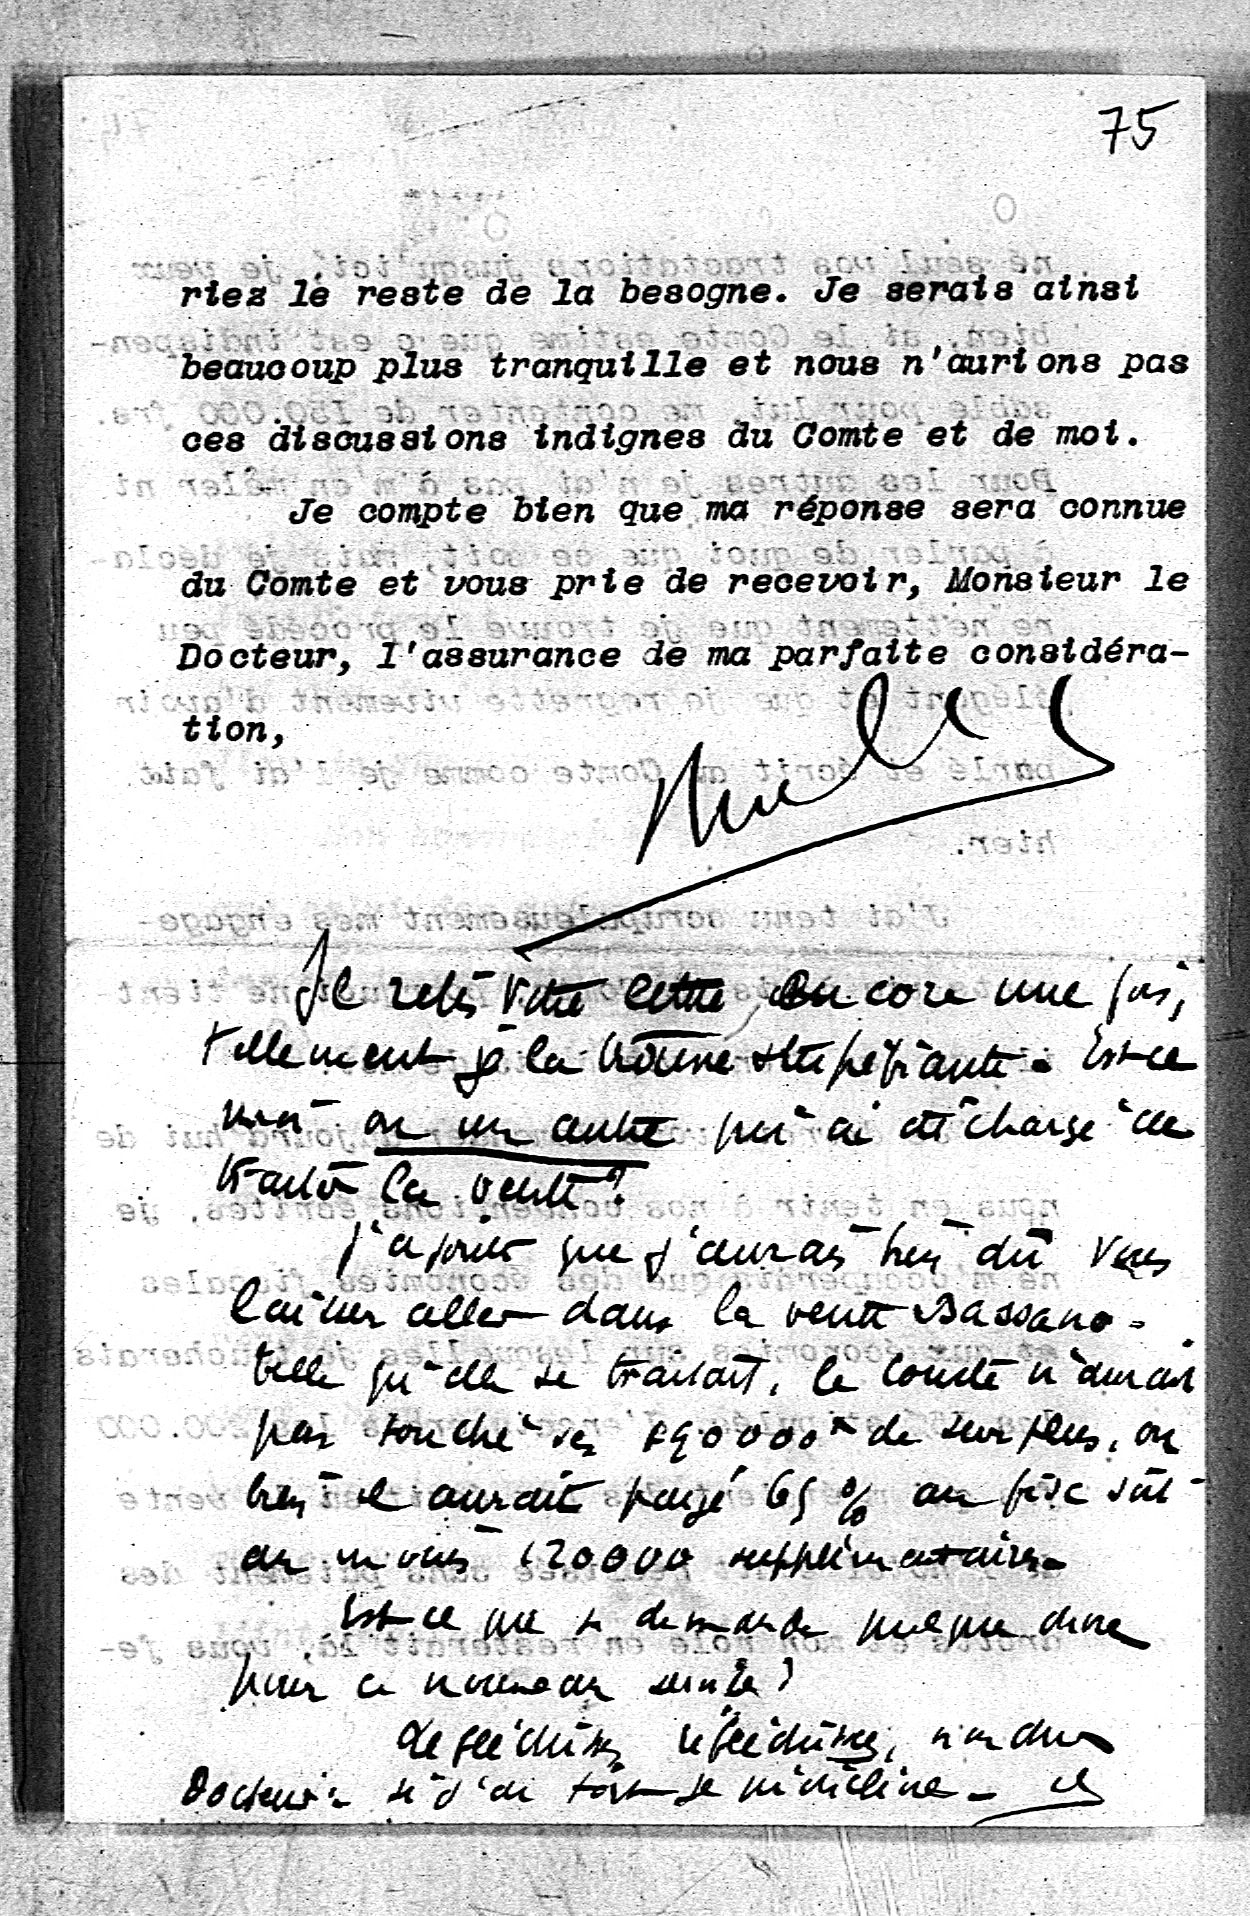 75
riez le reste de la besogne. Je serais ainsi
beaucoup plus tranquille et nous n'aurions pas
ces discussions indignes du Comte et de moi.
Je compte bien que ma réponse sera connue
du Comte et vous prie de recevoir, Monsieur le
Docteur, l'assurance de ma parfaite considéra-
tion,
Je relis votre lettre encore une fois,
tellement je la trouve stupéfiante. Est-ce
moi ou un autre qui ai été chargé de
traiter la vente?
J'ajoute que j'aurais bien dû vous
laisser aller dans la vente Bassano.
telle qu'elle se traitait, le Comte n'aurait
pas touché ses de surplus, ou
bien il aurait payé 65% au fisc soit
au moins 120000 supplémentaires.
Est-ce que je demande quelque chose
pour ce nouveau service?
Réfléchissez, réfléchissez, mon cher
Docteur: si j'ai tort je m'incline.